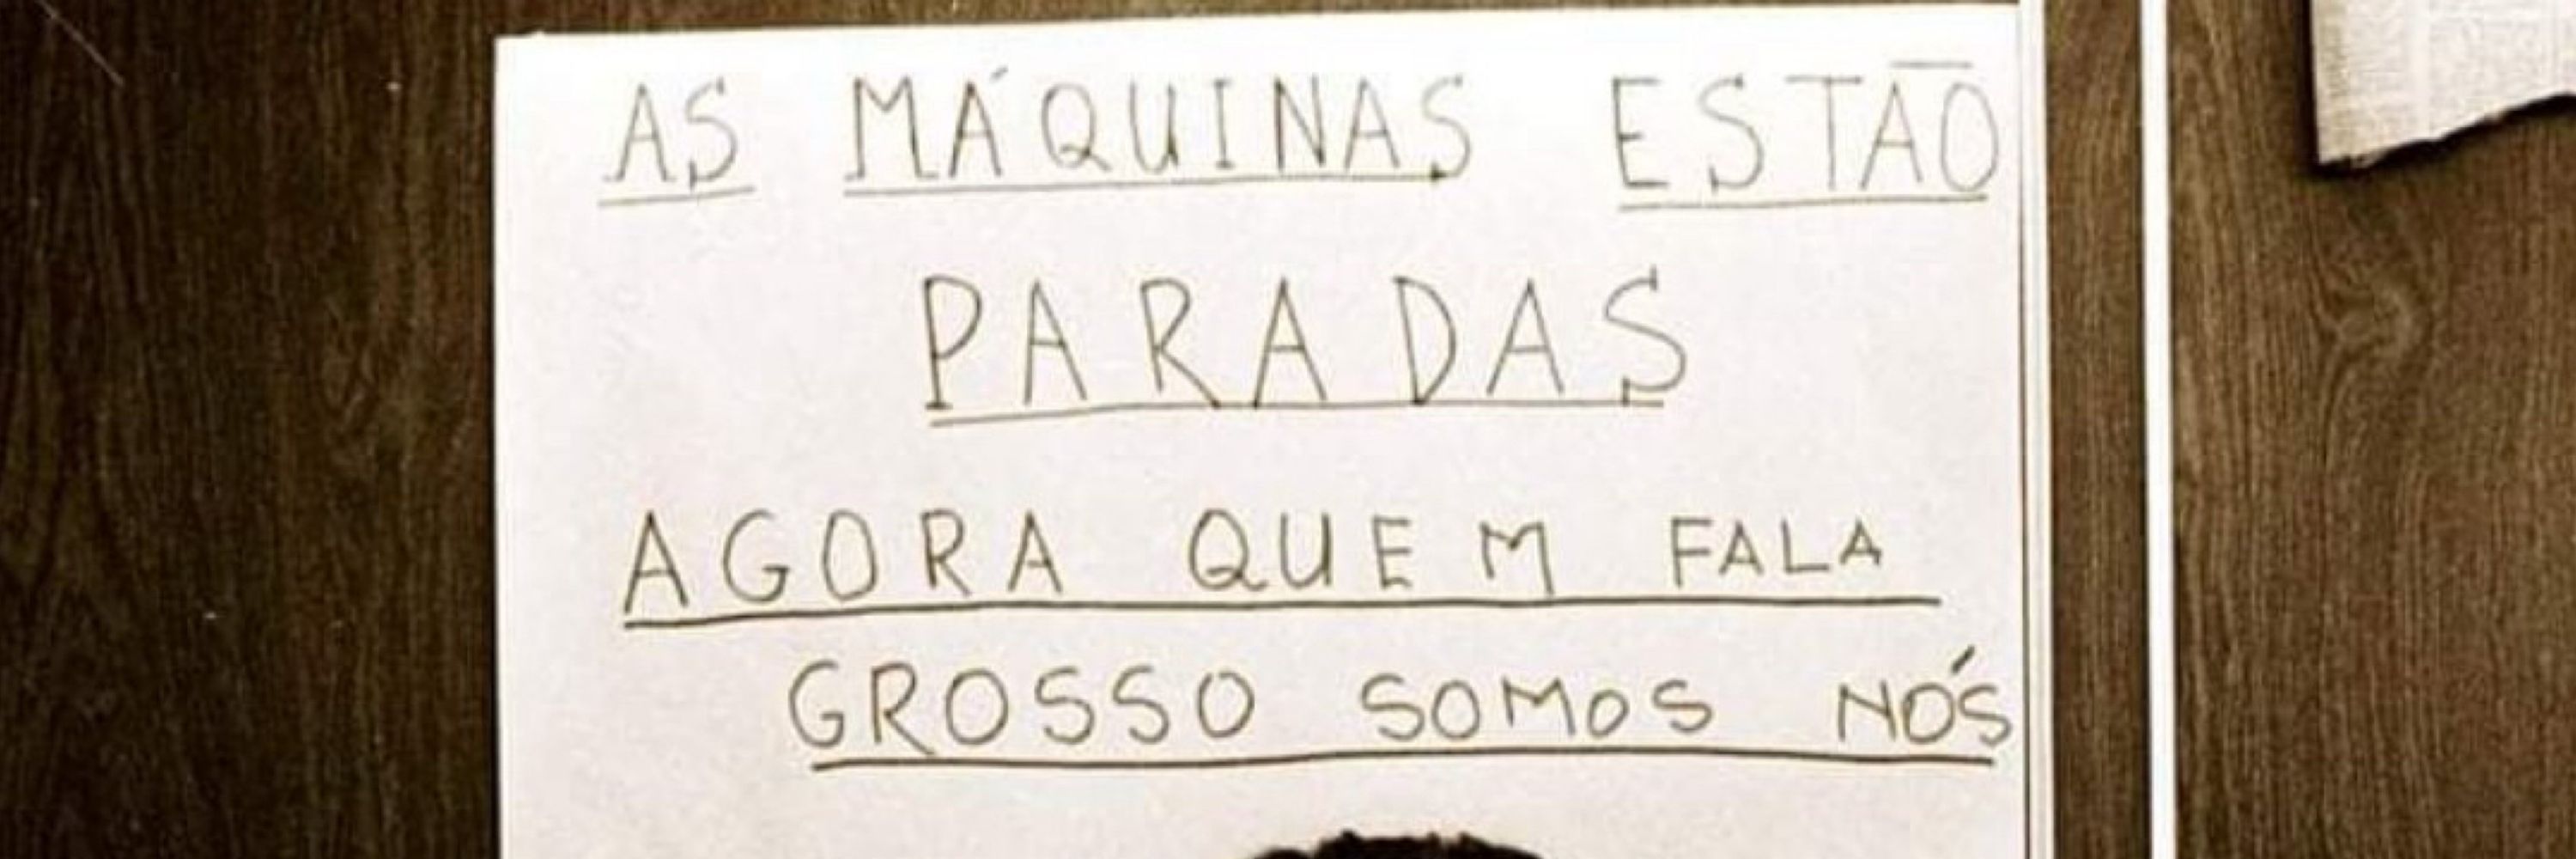 AS MÁQUINAS ESTÃO
PARADAS
AGORA QUEM FALA
GROSSO SOMOS NÓS